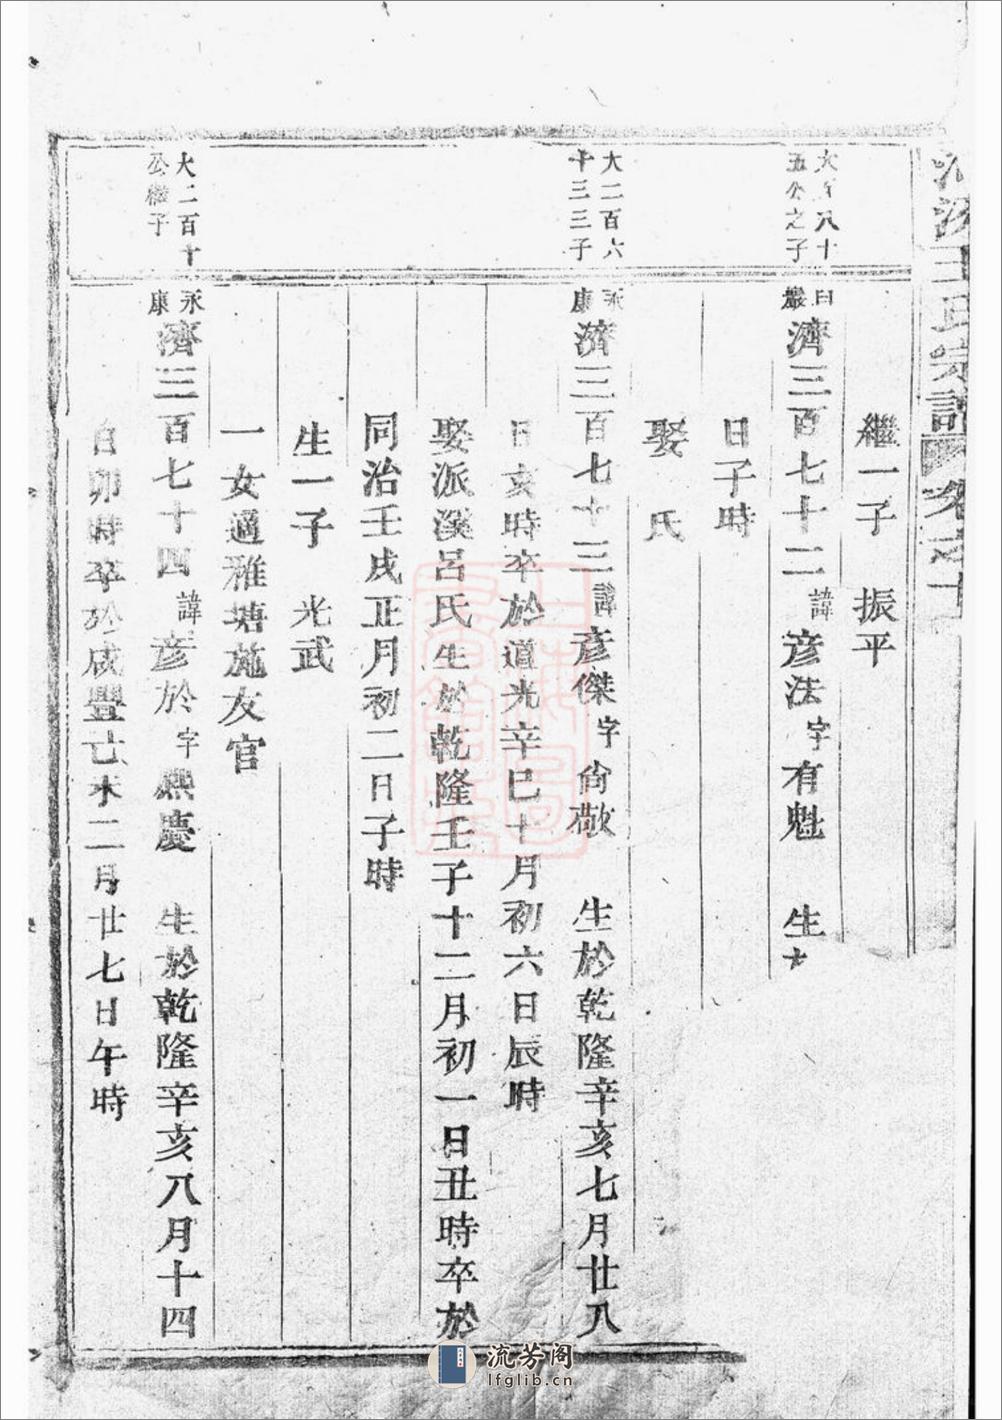 王氏宗譜 卷之十
繼一子 振平
五公之子
曰嚴
濟三百七十二 諱彥法 字有魁 生
日子時
娶 氏
大二百六
十三三子
永康
濟三百七十三 諱彥傑 字尙敬 生於乾隆辛亥七月廿八
日亥時卒於道光辛巳十月初六日辰時
娶派溪呂氏生於乾隆壬子十二月初一日丑時卒於
同治壬戌正月初二日子時
生一子 光武
一女適雅塘施友官
大二百十
公繼子
永康
濟三百七十四 諱彥於 字熙慶 生於乾隆辛亥八月十四
日卯時卒於咸豐己未二月廿七日午時
流芳阁
lfglib.cn